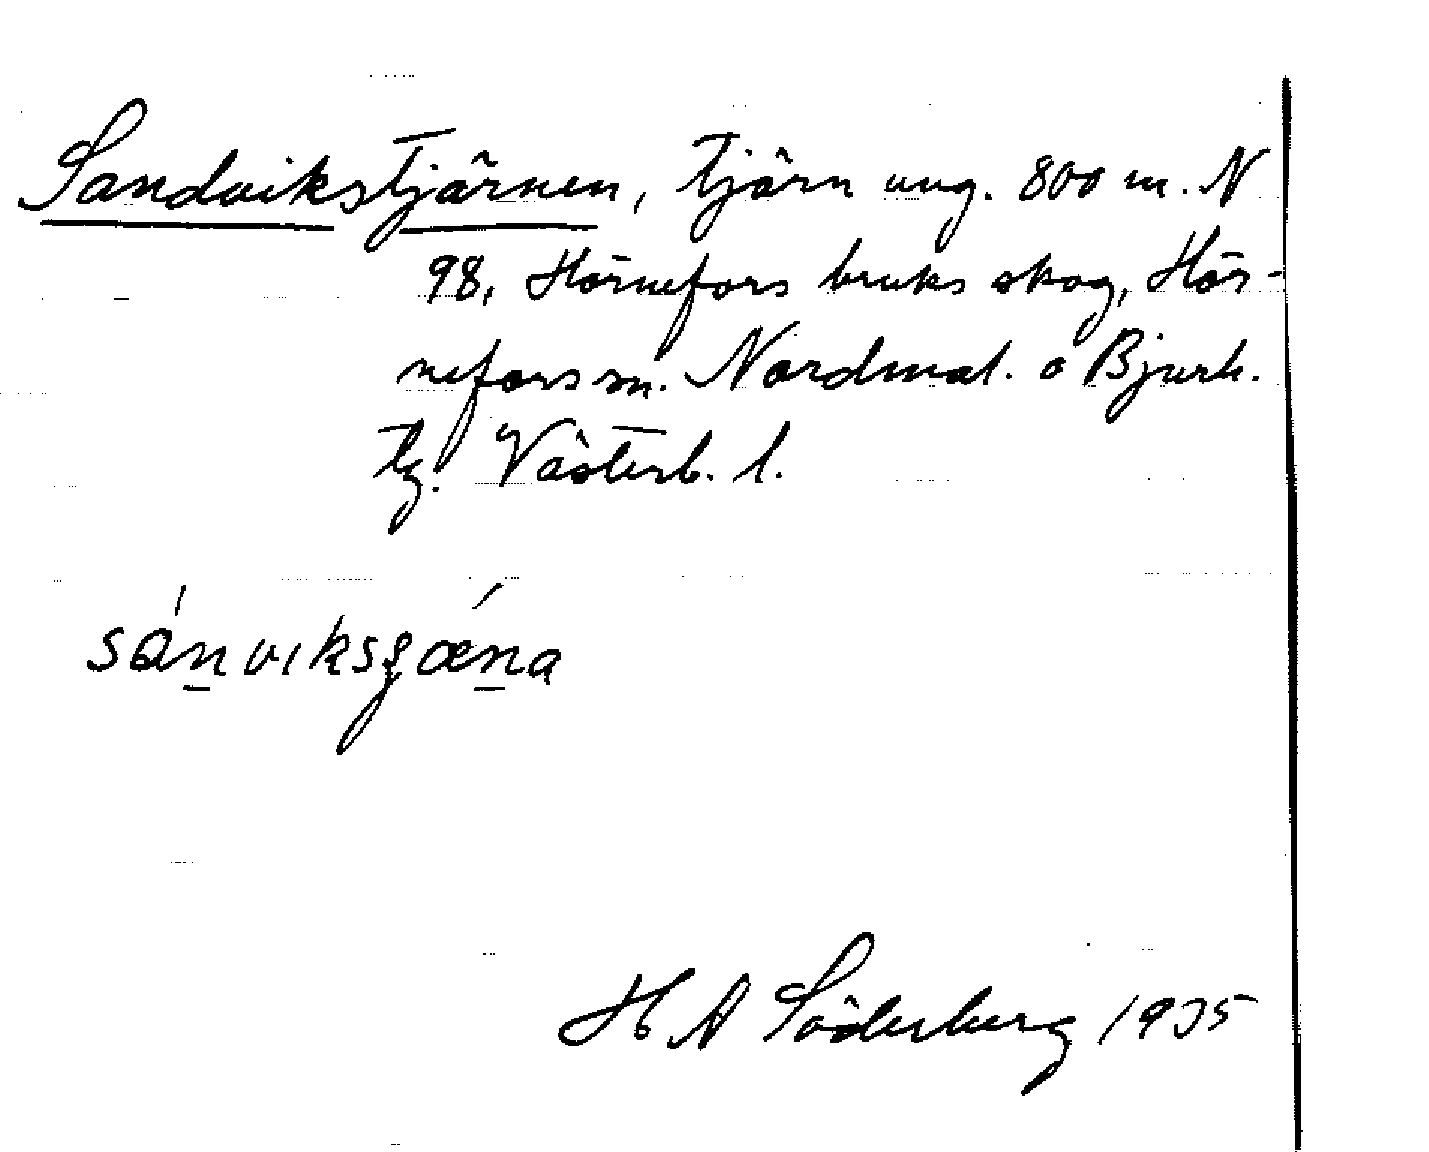 Sandvikstjärnen, tjärn ung. 800 m. N
98, Hörnefors bruks skog, Hör-
nefors sn. Nordmal. o Bjurh.
tg. Västerb. l.
H A Söderberg 1935